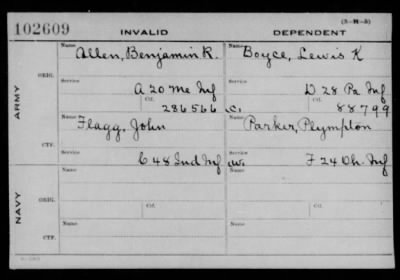 (3-M-5)
102609 INVALID DEPENDENT
Name Allen, Benjamin R. Name Boyce, Lewis K
ARMY
ORIG.
Service A 20 Me Inf Service D 28 Pa Inf
Ctf. 286566 C. Ctf. 88799
Name Flagg, John Name Parker, Plympton
CTF.
Service C 48 Ind Inf W. Service F 24 Oh. Inf
NAVY
Name Name
ORIG.
Service Ctf. Service Ctf.
Name Name
CTF.
Service Service